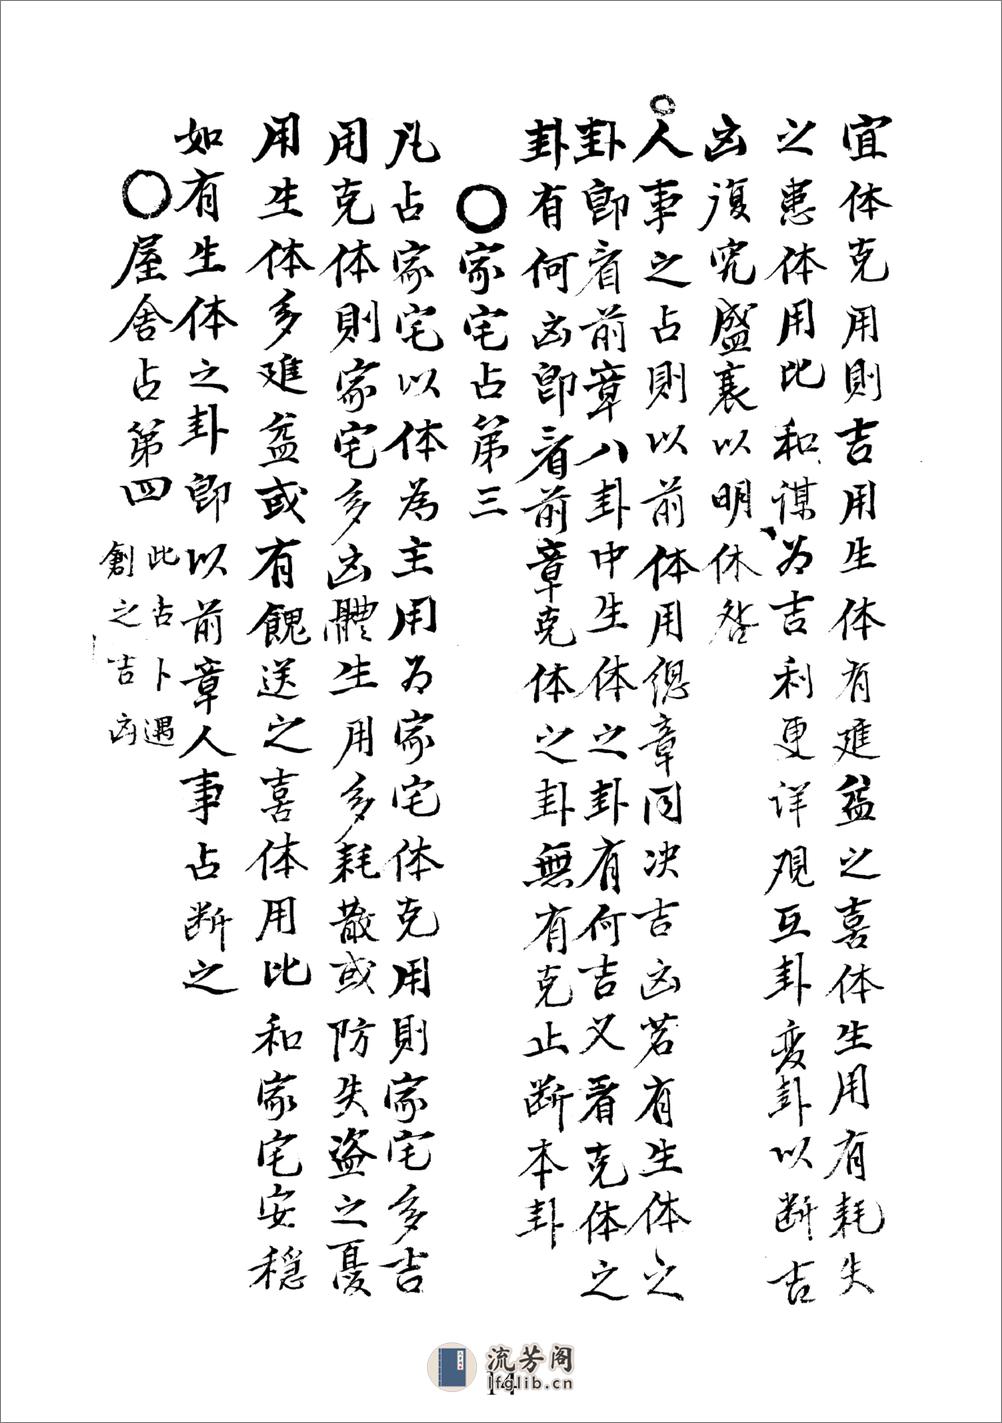 宜体克用則吉用生体有進益之喜体生用有耗失
之患体用比和谋为吉利更详观互卦变卦以断吉
凶復究盛衰以明休咎
○人事之占則以前体用總章同决吉凶若有生体之
卦即看前章八卦中生体之卦有何吉又看克体之
卦有何凶即看前章克体之卦無有克止断本卦
○家宅占第三
凡占家宅以体為主用为家宅体克用則家宅多吉
用克体則家宅多凶體生用多耗散或防失盗之憂
用生体多進益或有餽送之喜体用比和家宅安穩
如有生体之卦即以前章人事占断之
○屋舍占第四
此占卜遇
創之吉凶
流芳阁
lfglib.cn
14